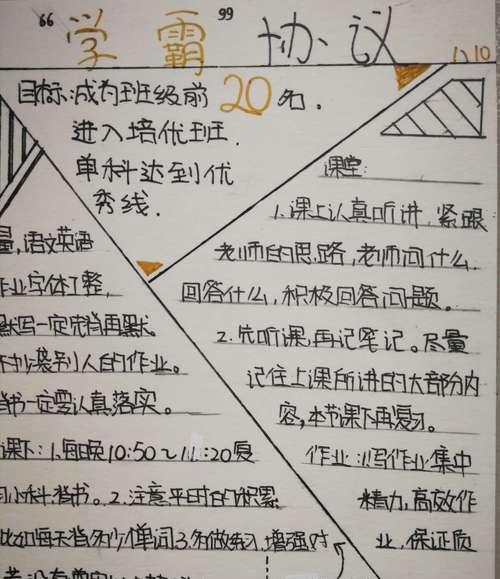 66 99
学霸协议
1) 10
目标:成为班级前20名.
进入培优班.
单科达到优
秀线.
课堂:
1.课上认真听讲,紧跟
老师的思路,老师问什么,
回答什么,积极回答问题。
2.先听课,再记笔记。尽量
记住上课所讲的大部分内
容,本节课下再复习。
作业:1.写作业集中
精力,高效作
业,保证质
量,语文英语
作业字体工整,
默写一定完背再默。
不抄袭别人的作业。
背书一定要认真落实。
课下:1.每晚10:50~11:20复
习小科背书。2.注意平时的积累
比如每天背不少单词3.多做练习,增强对